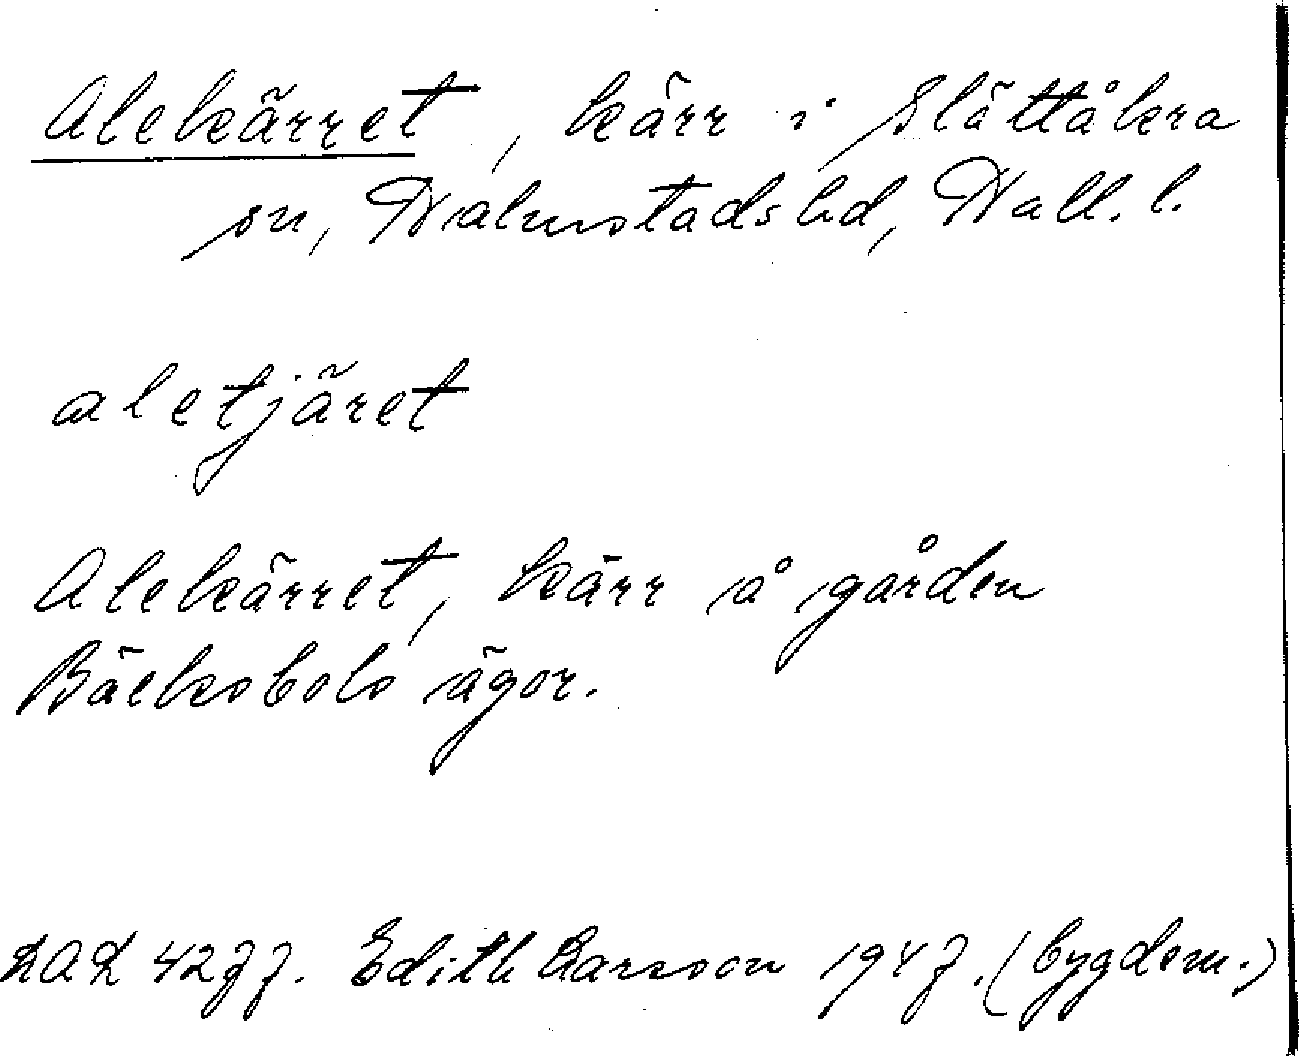 Alekärret, kärr i Slättåkra
sn, Halmstads hd, Hall. l.
aletjäret
Alekärret, kärr å gården
Bäcksbols ägor.
DAL 4277. Edith Larsson 1947. (bygdem.)